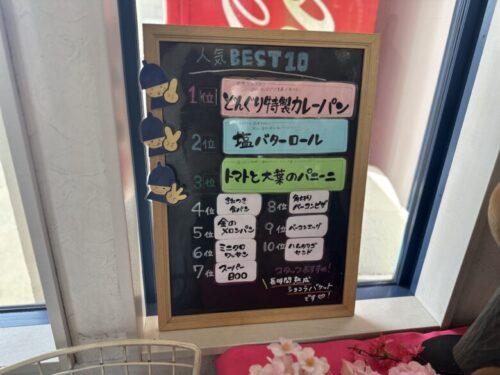 人気 BEST10
1位 どんぐり特製カレーパン
2位 塩バターロール
3位 トマトと大葉のパニーニ
4位
食パン
5位 金の
メロンパン
6位 ミニクロ
ワッサン
7位 スーパー
800
8位 角切り
ベーコンピザ
9位 ベーコンエッグ
10位 ハムカツ
サンド
スタッフおすすめ!
長時間熟成
ショコラバケット
です♡!